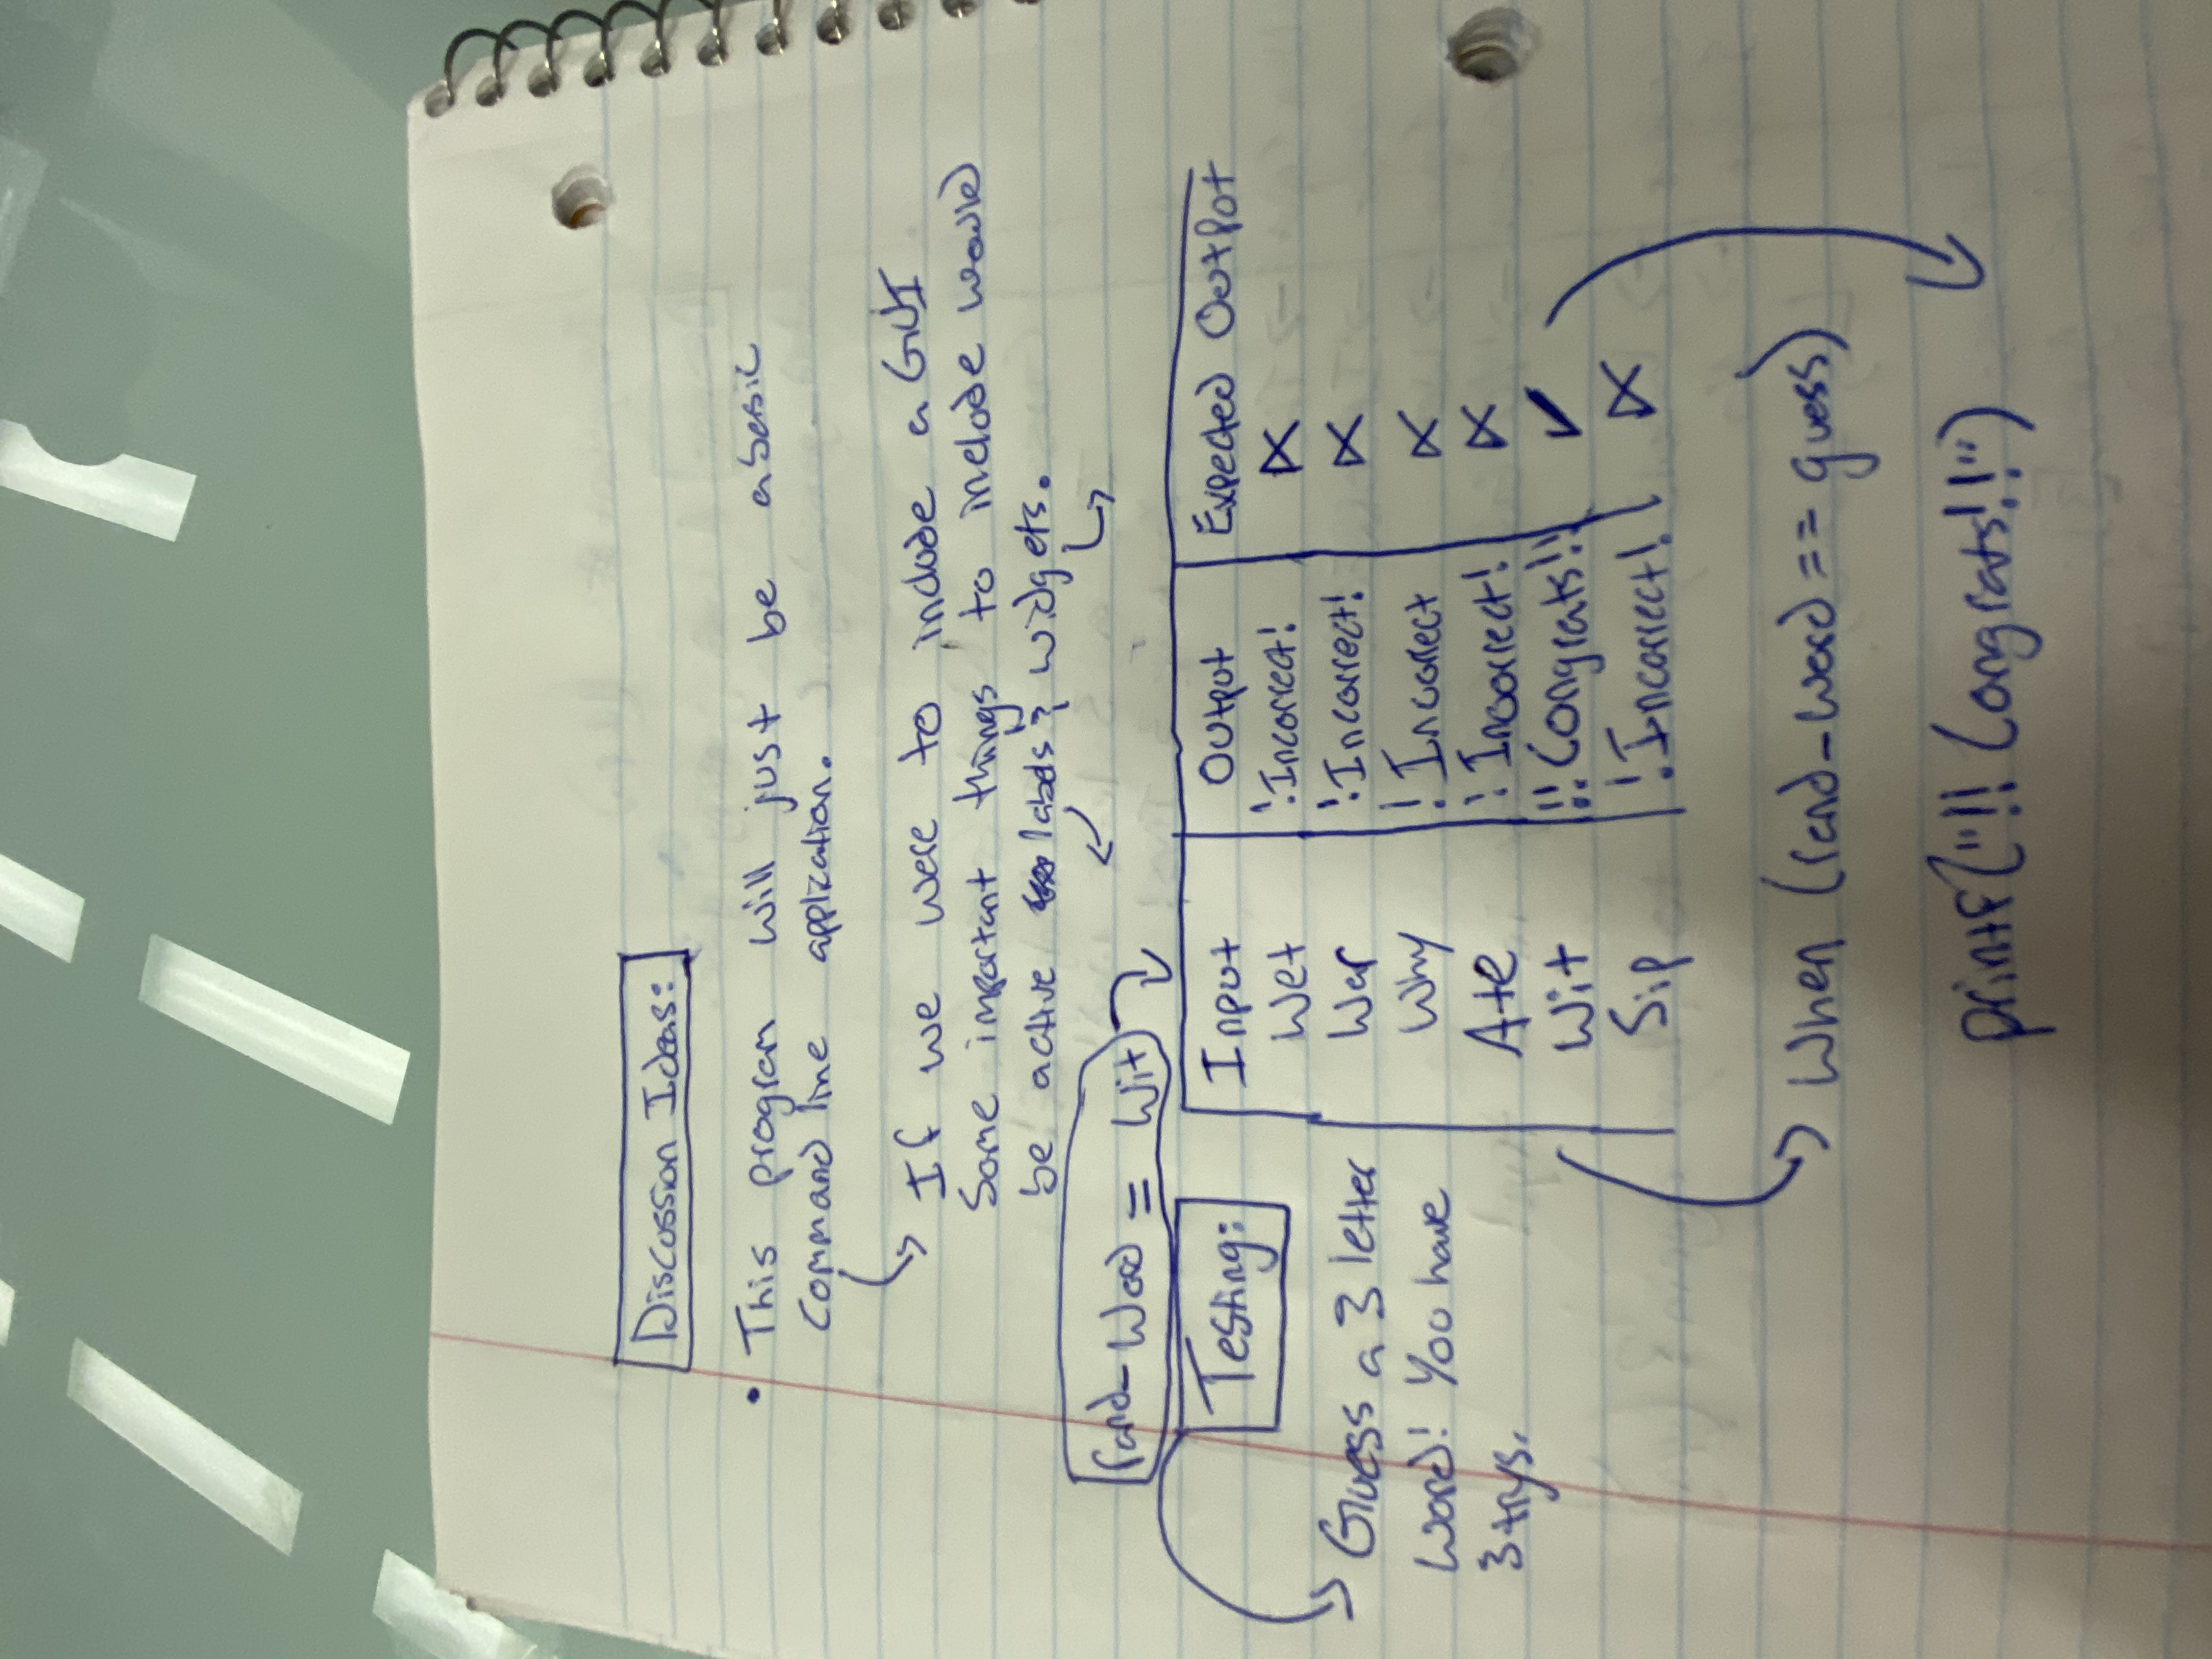 Discussion Ideas:
• This program will just be a basic
Command line application.
If we were to include a GUI
Some important things to include would
be active labels & widgets.
rand_word = Wit
Testing:
Guess a 3 letter
word! You have
3 trys.
Input Output Expected Output
Wet !Incorrect! X
War !Incorrect! X
Why !Incorrect X
Ate !Incorrect! X
Wit !!Congrats!! ✓
Sip !Incorrect! X
When (rand_word == guess)
printf("!! Congrats!!")